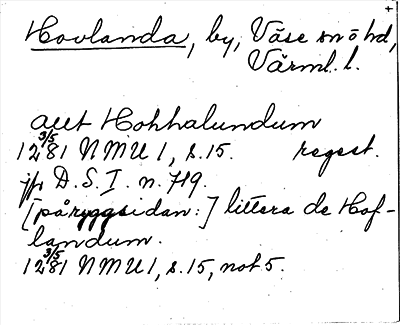 +
Hovlanda, by, Väse sn o hd,
Värml. l.
aut Hohhalundum
12 3/5 81 NMU 1, s. 15. regest.
jfr D.S.I. n. 719.
[på ryggsidan:] littera de Hof-
landum.
12 3/5 81 NMU 1, s. 15, not 5.